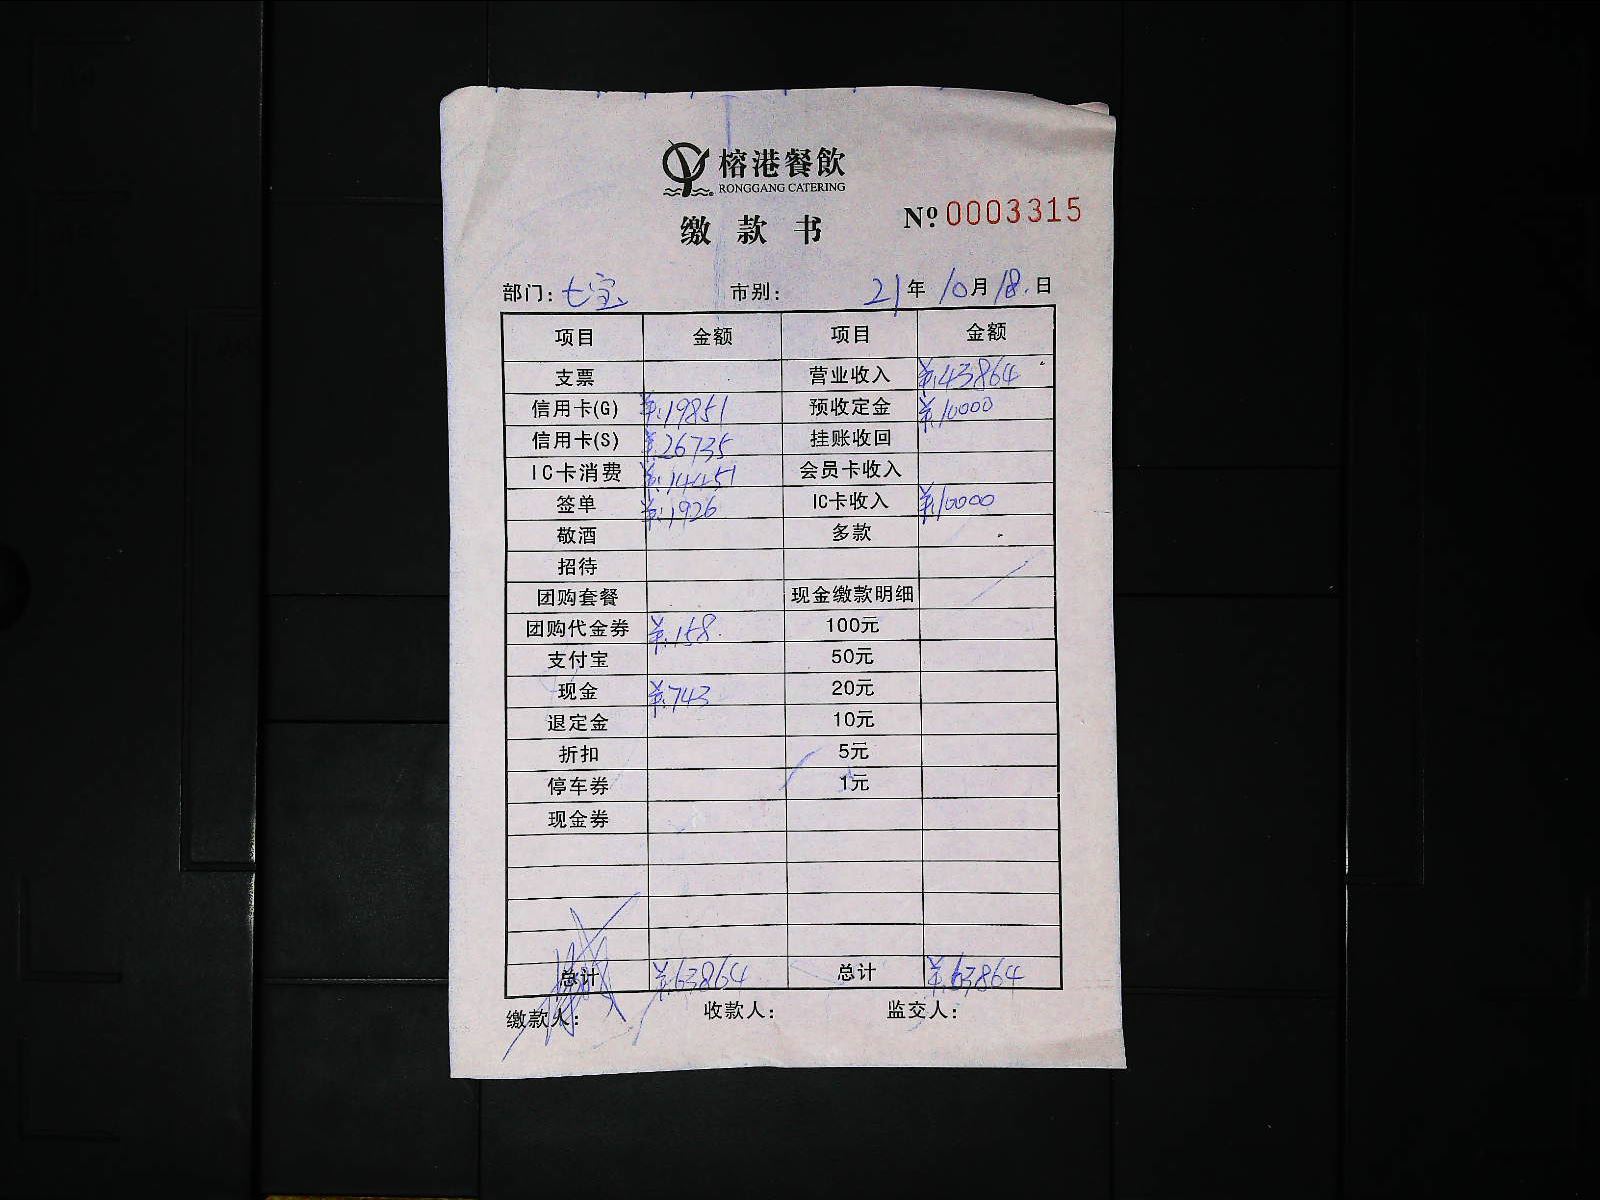 榕港餐飲
RONGGANG CATERING
缴款书
№ 0003315
部门：七宝 市别： 21年10月18日
项目 金额 项目 金额
支票 营业收入 ¥:43864
信用卡(G) ¥:19851 预收定金 ¥:10000
信用卡(S) ¥:26735 挂账收回
IC卡消费 ¥:14451 会员卡收入
签单 ¥:1926 IC卡收入 ¥10000
敬酒 多款
招待
团购套餐 现金缴款明细
团购代金券 ¥:158.
支付宝 100元
现金 ¥:743 50元
退定金 20元
折扣 10元
停车券 5元
现金券 1元
总计 ¥:63864 总计 ¥:63864
缴款人： 收款人： 监交人：